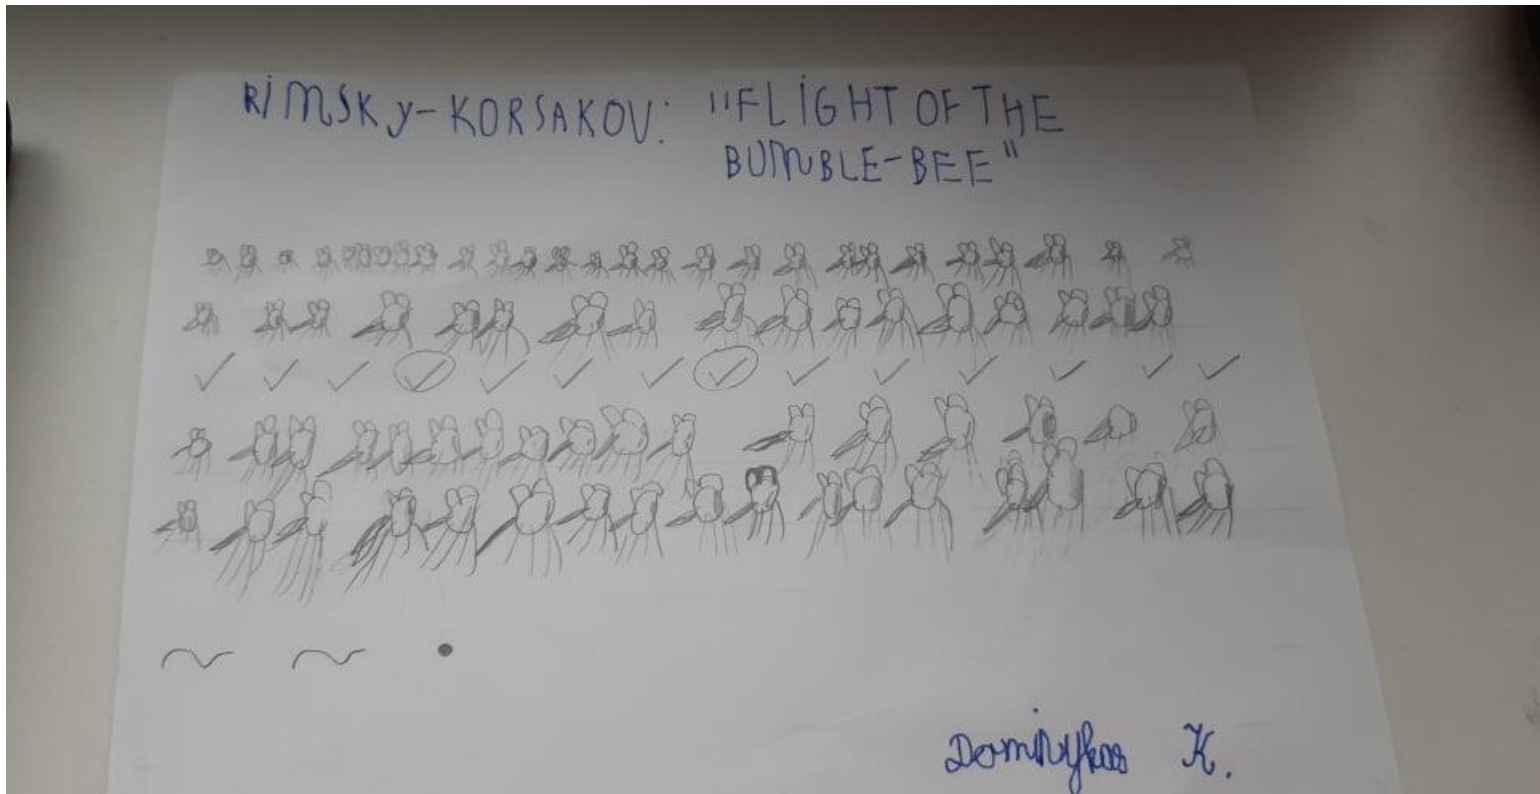 RiMSKy-KORSAKOV: "FLiGHT OF THE
BUMBLE-BEE"
Dominykas K.